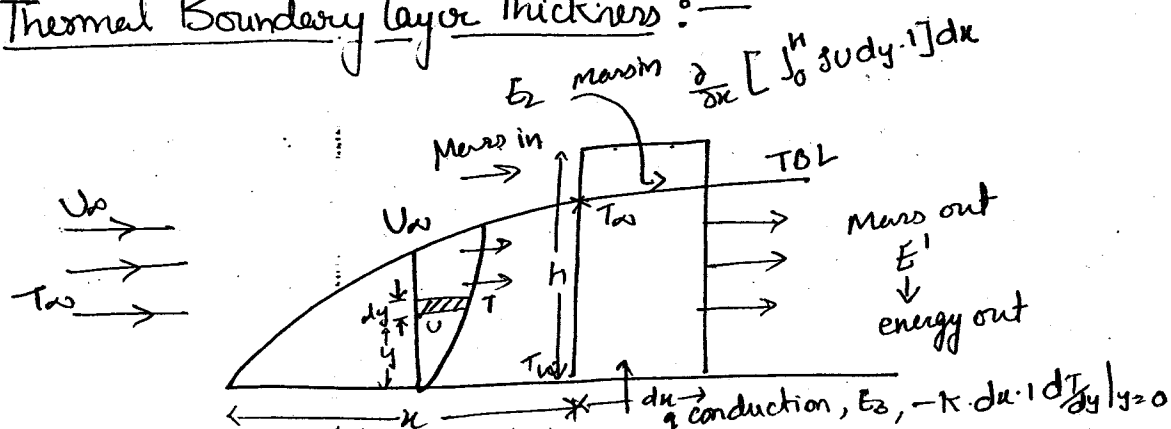 Thermal Boundary layer Thickness :—
E₂ mass in ∂/∂x [ ∫₀ʰ ρU dy·1] dx
Mass in
TBL
U∞
U∞
T∞
Mass out
E'
h
T∞
dy
U
T
y
energy out
Tw
x
dx
q conduction, E₃, -K·dx·1 dT/dy|y=0